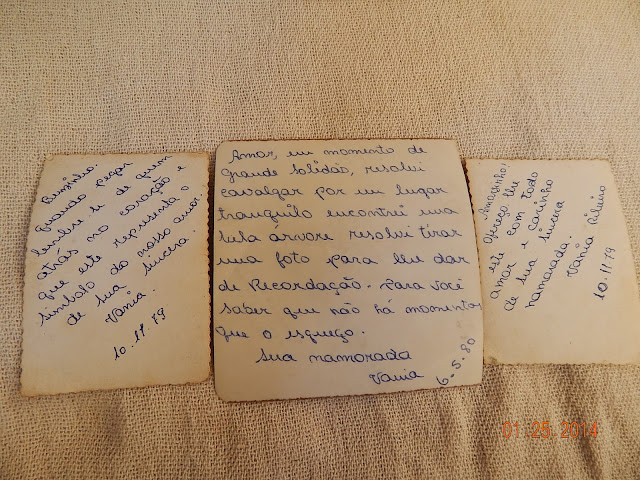 Benzinho.
quando pegar
lembre-se de quem
atrás no coração e
que este representa o
símbolo do nosso amor.
de sua sincera.
Vania.
10.11.79
Amor, em momento de
grande solidão, resolvi
cavalgar por um lugar
tranquilo encontrei uma
bela árvore resolvi tirar
uma foto para lhe dar
de Recordação. Para você
saber que não há momentos
que o esqueço.
Sua namorada
Vania
6.5.80
Amorzinho!
Ofereço lhe
este com todo
amor e carinho
de sua sincera
namorada.
Vania
10.11.79
01.25.2014